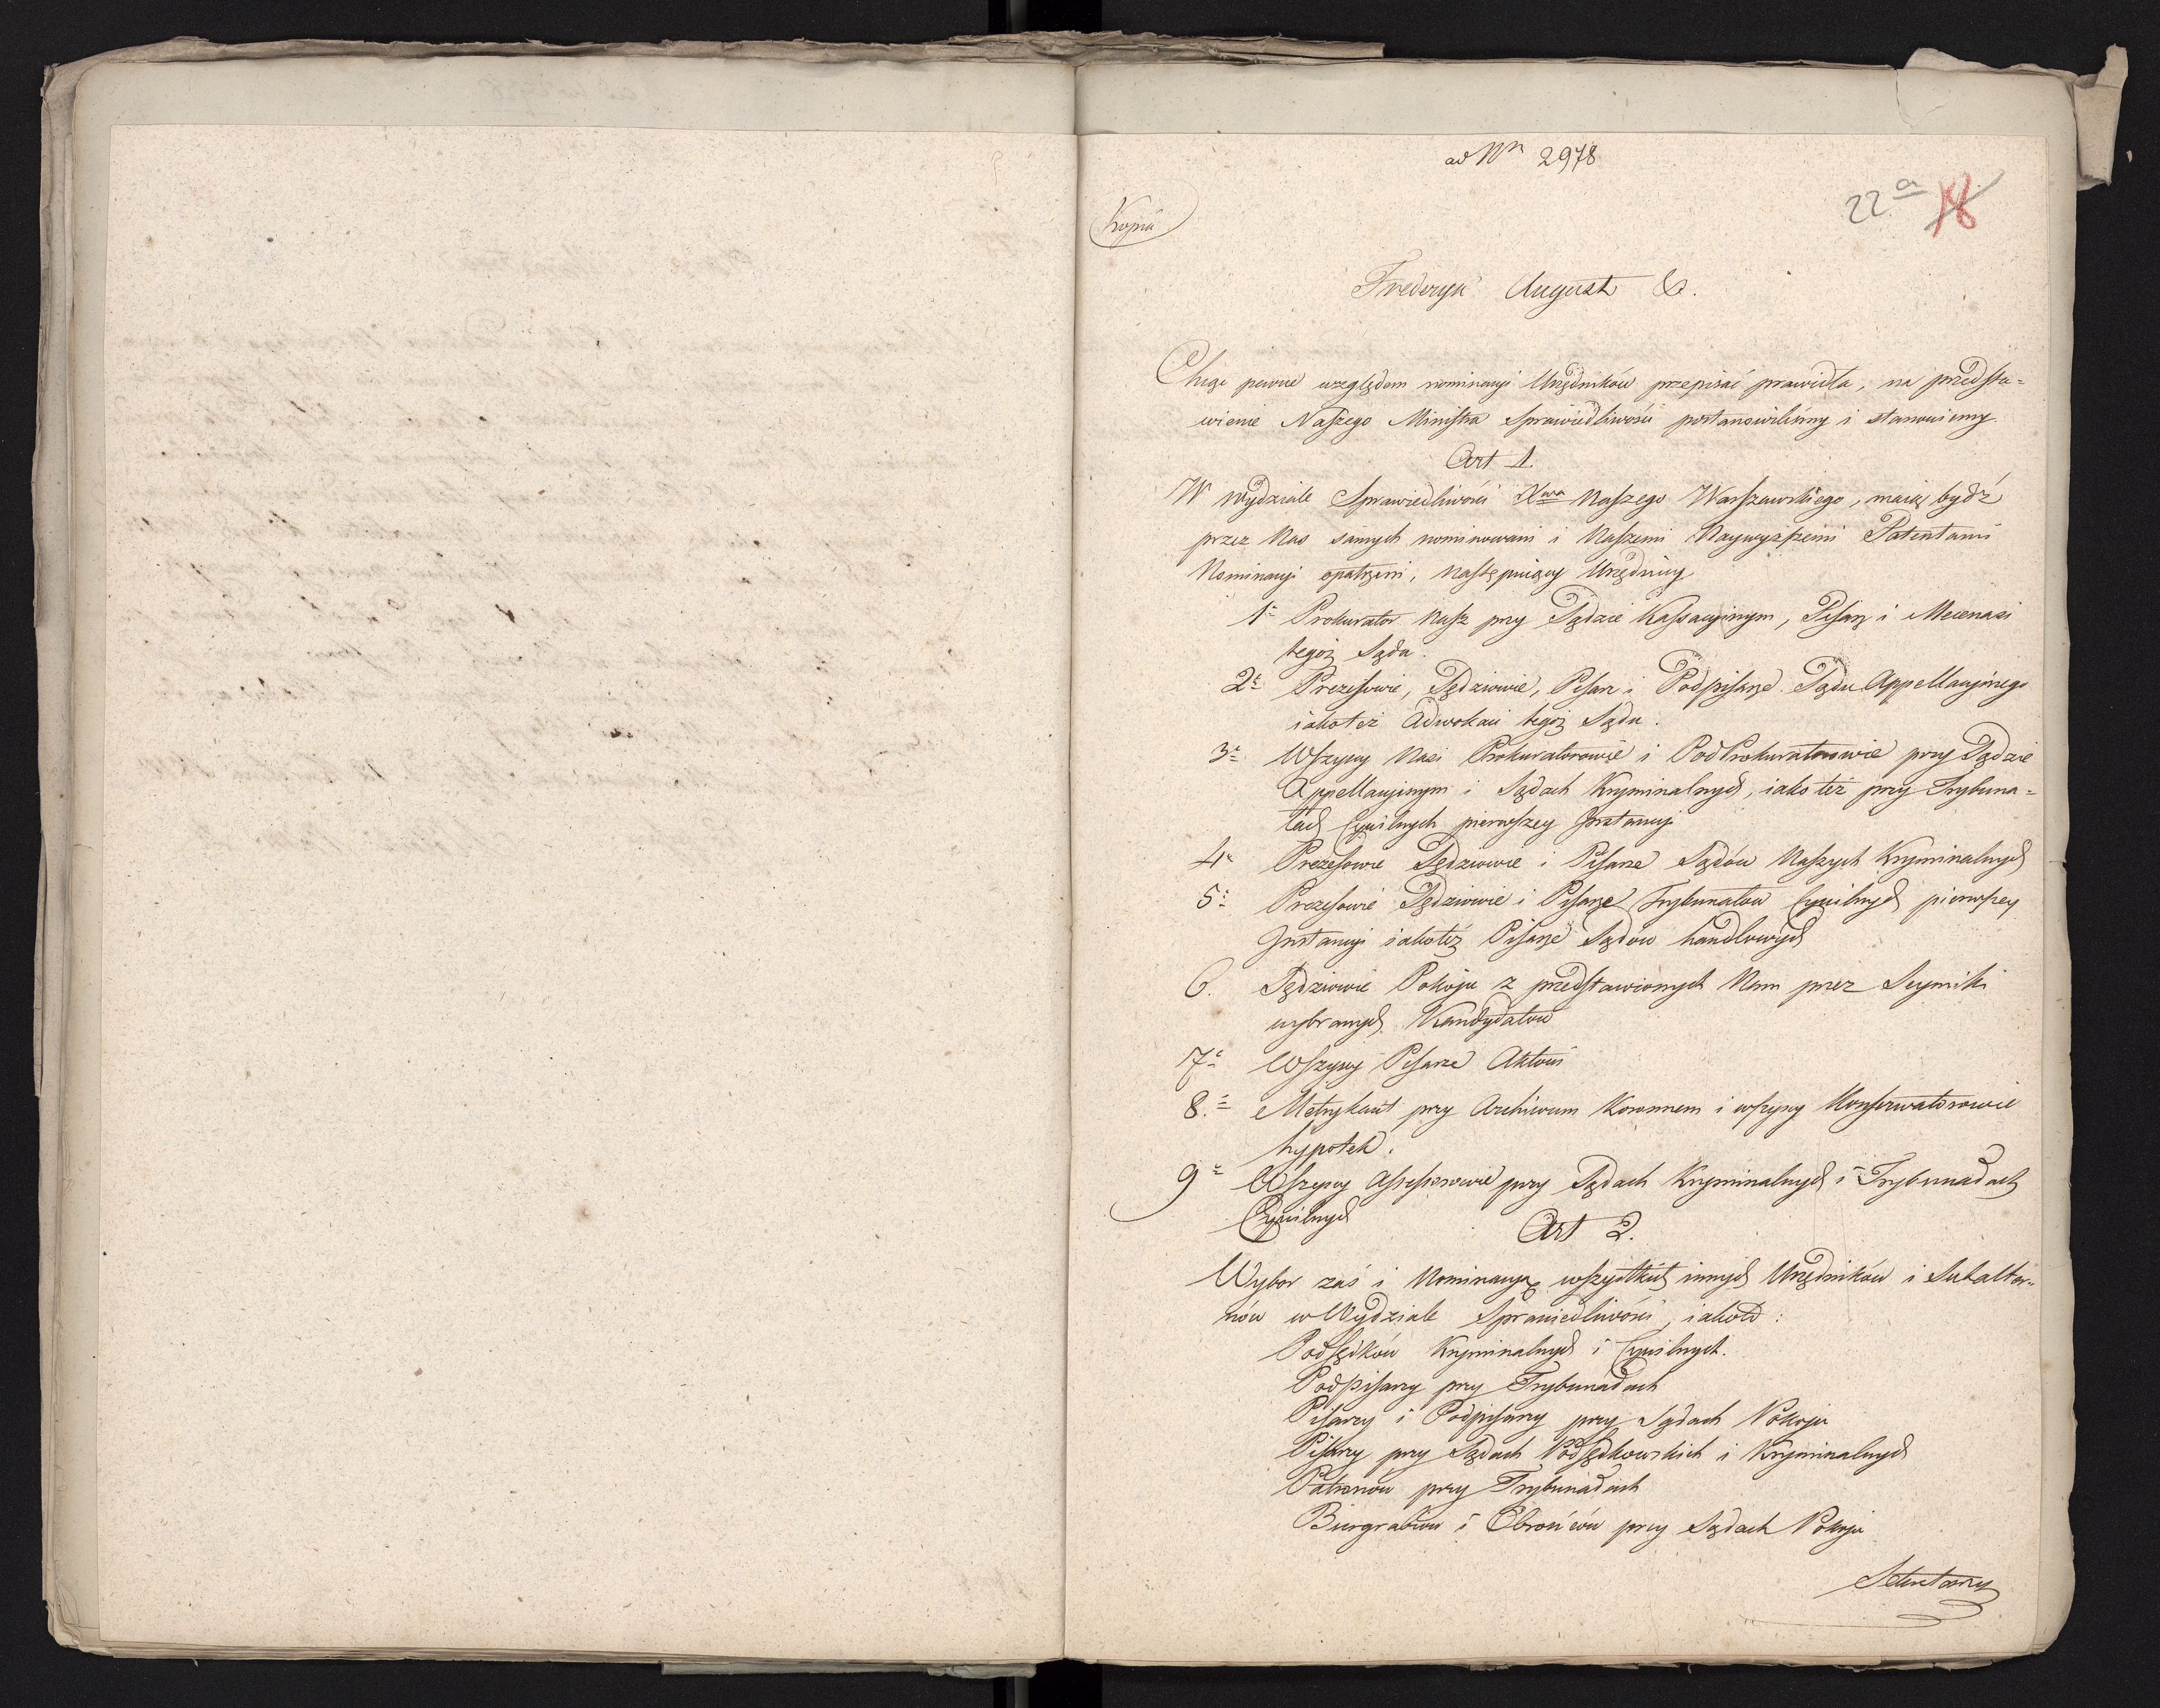 ad Nrn 2978
22a 18
Kopia
Frederyk August &.
Chcąc pewne względem nominacyi Urzędników przepisać prawidła, na przedsta=
wienie Naszego Ministra Sprawiedliwości postanowiliśmy i stanowiemy.
Art 1.
W Wydziale Sprawiedliwości Xwa Naszego Warszawskiego, maią bydź
przez Nas samych nominowani i Naszemi Naywyższemi Patentami
Nominacyi opatrzeni, następuiący Urzędnicy
1e Prokurator Nasz przy Sądzie Kassacyinym, Pisarz i Mecenasi
tegoż Sądu.
2e Prezesowie, Sędziowie, Pisarz i Podpisarze Sądu Appellacyinego
iakoteż Adwokaci tegoż Sądu.
3e Wszyscy Nasi Prokuratorowie i PodProkuratorowie przy Sądzie
Appellacyinym i Sądach Kryminalnych, iako też przy Trybuna=
łach Cywilnych pierwszey Instancyi
4e Prezesowie Sędziowie i Pisarze Sądów Naszych Kryminalnych
5e Prezesowie Sędziowie i Pisarze Trybunałow Cywilnych pierwszey
Instancyi iakoteż Pisarze Sądów handlowych
6. Sędziowie Pokoju z przedstawionych Nam przez Seymiki
wybranych Kandydatow
7e Wszyscy Pisarze Aktowi
8.e Metrykant przy Archiwum Koronnem i wszyscy Konserwatorowie
hypotek.
9e Wszyscy Assessorowie przy Sądach Kryminalnych i Trybunałach
Cywilnych
Art 2.
Wybor zaś i Nominacyą wszystkich innych Urzędników i Subalter=
nów w Wydziale Sprawiedliwości, iakoto:
Podsędków Kryminalnych i Cywilnych.
Podpisarzy przy Trybunałach
Pisarzy i Podpisarzy przy Sądach Pokoju
Pisarzy przy Sądach Podsędkowskich i Kryminalnych
Patronów przy Trybunałach
Burgrabiow i Obrońców przy Sądach Pokoju
Sekretarzy